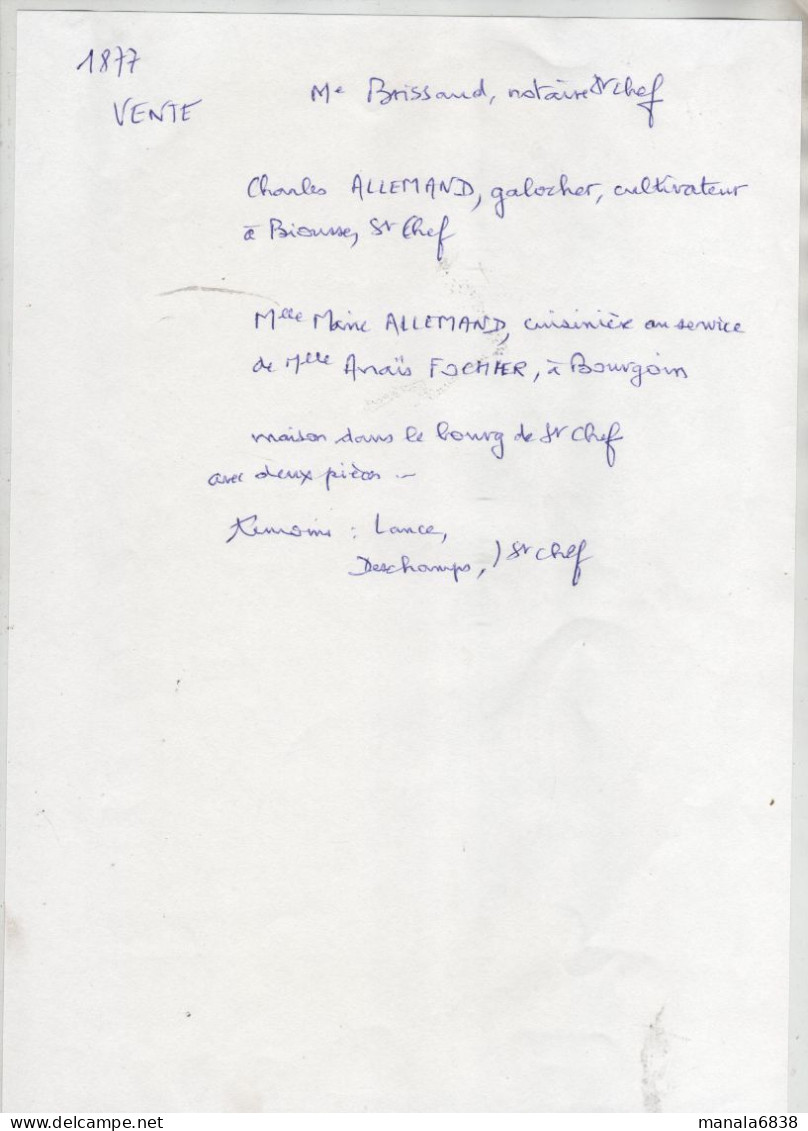 1877
Me Brissaud, notaire St Chef
VENTE
Charles ALLEMAND, galocher, cultivateur
à Biousse, St Chef
Mlle Marie ALLEMAND, cuisinière au service
de Mlle Anaïs FOCHIER, à Bourgoin
maison dans le bourg de St Chef
avec deux pièces -
témoins : Lance,
Deschamps, ) St Chef
manala6838